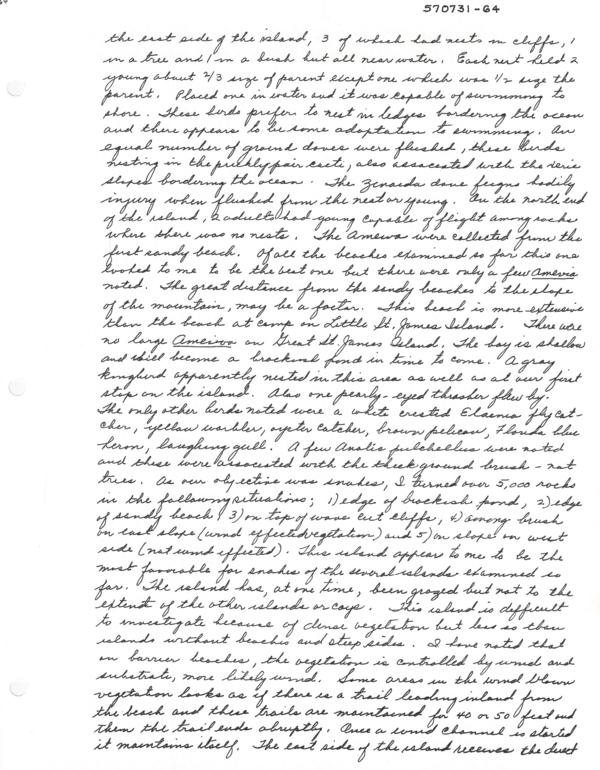 570731-64
the east side of the island, 3 of which had nests in cliffs, 1
in a tree and 1 in a bush but all near water. Each nest held 2
young about 2/3 size of parent except one which was 1/2 size the
parent. Placed one in water and it was capable of swimming to
shore. These birds prefer to nest in ledges bordering the ocean
and there appears to be some adaptation to swimming. An
equal number of ground doves were flushed, these birds
nesting in the pricklypair cacti, also associated with the xeric
slopes bordering the ocean. The Zenaida dove feigns bodily
injury when flushed from the nest or young. On the north end
of the island, 2 adults had young capable of flight among rocks
where there was no nests. The Ameiva were collected from the
first sandy beach. Of all the beaches examined so far this one
looked to me to be the best one but there were only a few Ameiva
noted. The great distance from the sandy beaches to the slope
of the mountain, may be a factor. This beach is more extensive
than the beach at camp on Little St. James Island. There were
no large Ameiva on Great St. James Island. The bay is shallow
and will become a brackish pond in time to come. A gray
kingbird apparently nested in this area as well as at our first
stop on the island. Also one pearly-eyed thrasher flew by.
The only other birds noted were a white crested Elaenia flycat-
cher, yellow warbler, oyster catcher, brown pelican, Florida blue
heron, laughing gull. A few Anolis pulchellus were noted
and these were associated with the thick ground brush - not
trees. As our objective was snakes, I turned over 5,000 rocks
in the following situations; 1) edge of brackish pond, 2) edge
of sandy beach, 3) on top of wave cut cliffs, 4) among brush
on east slope (wind effected vegetation) and 5) on slope on west
side (not wind effected). This island appear to me to be the
most favorable for snakes of the several islands examined so
far. The island has, at one time, been grazed but not to the
extent of the other islands or cays. This island is difficult
to investigate because of dense vegetation but less so than
islands without beaches and steep sides. I have noted that
on barrier beaches, the vegetation is controlled by wind and
substrate, more likely wind. Some areas in the wind blown
vegetation looks as if there is a trail leading inland from
the beach and these trails are maintained for 40 or 50 feet and
then the trail ends abruptly. Once a wind channel is started
it maintains itself. The east side of the island receives the